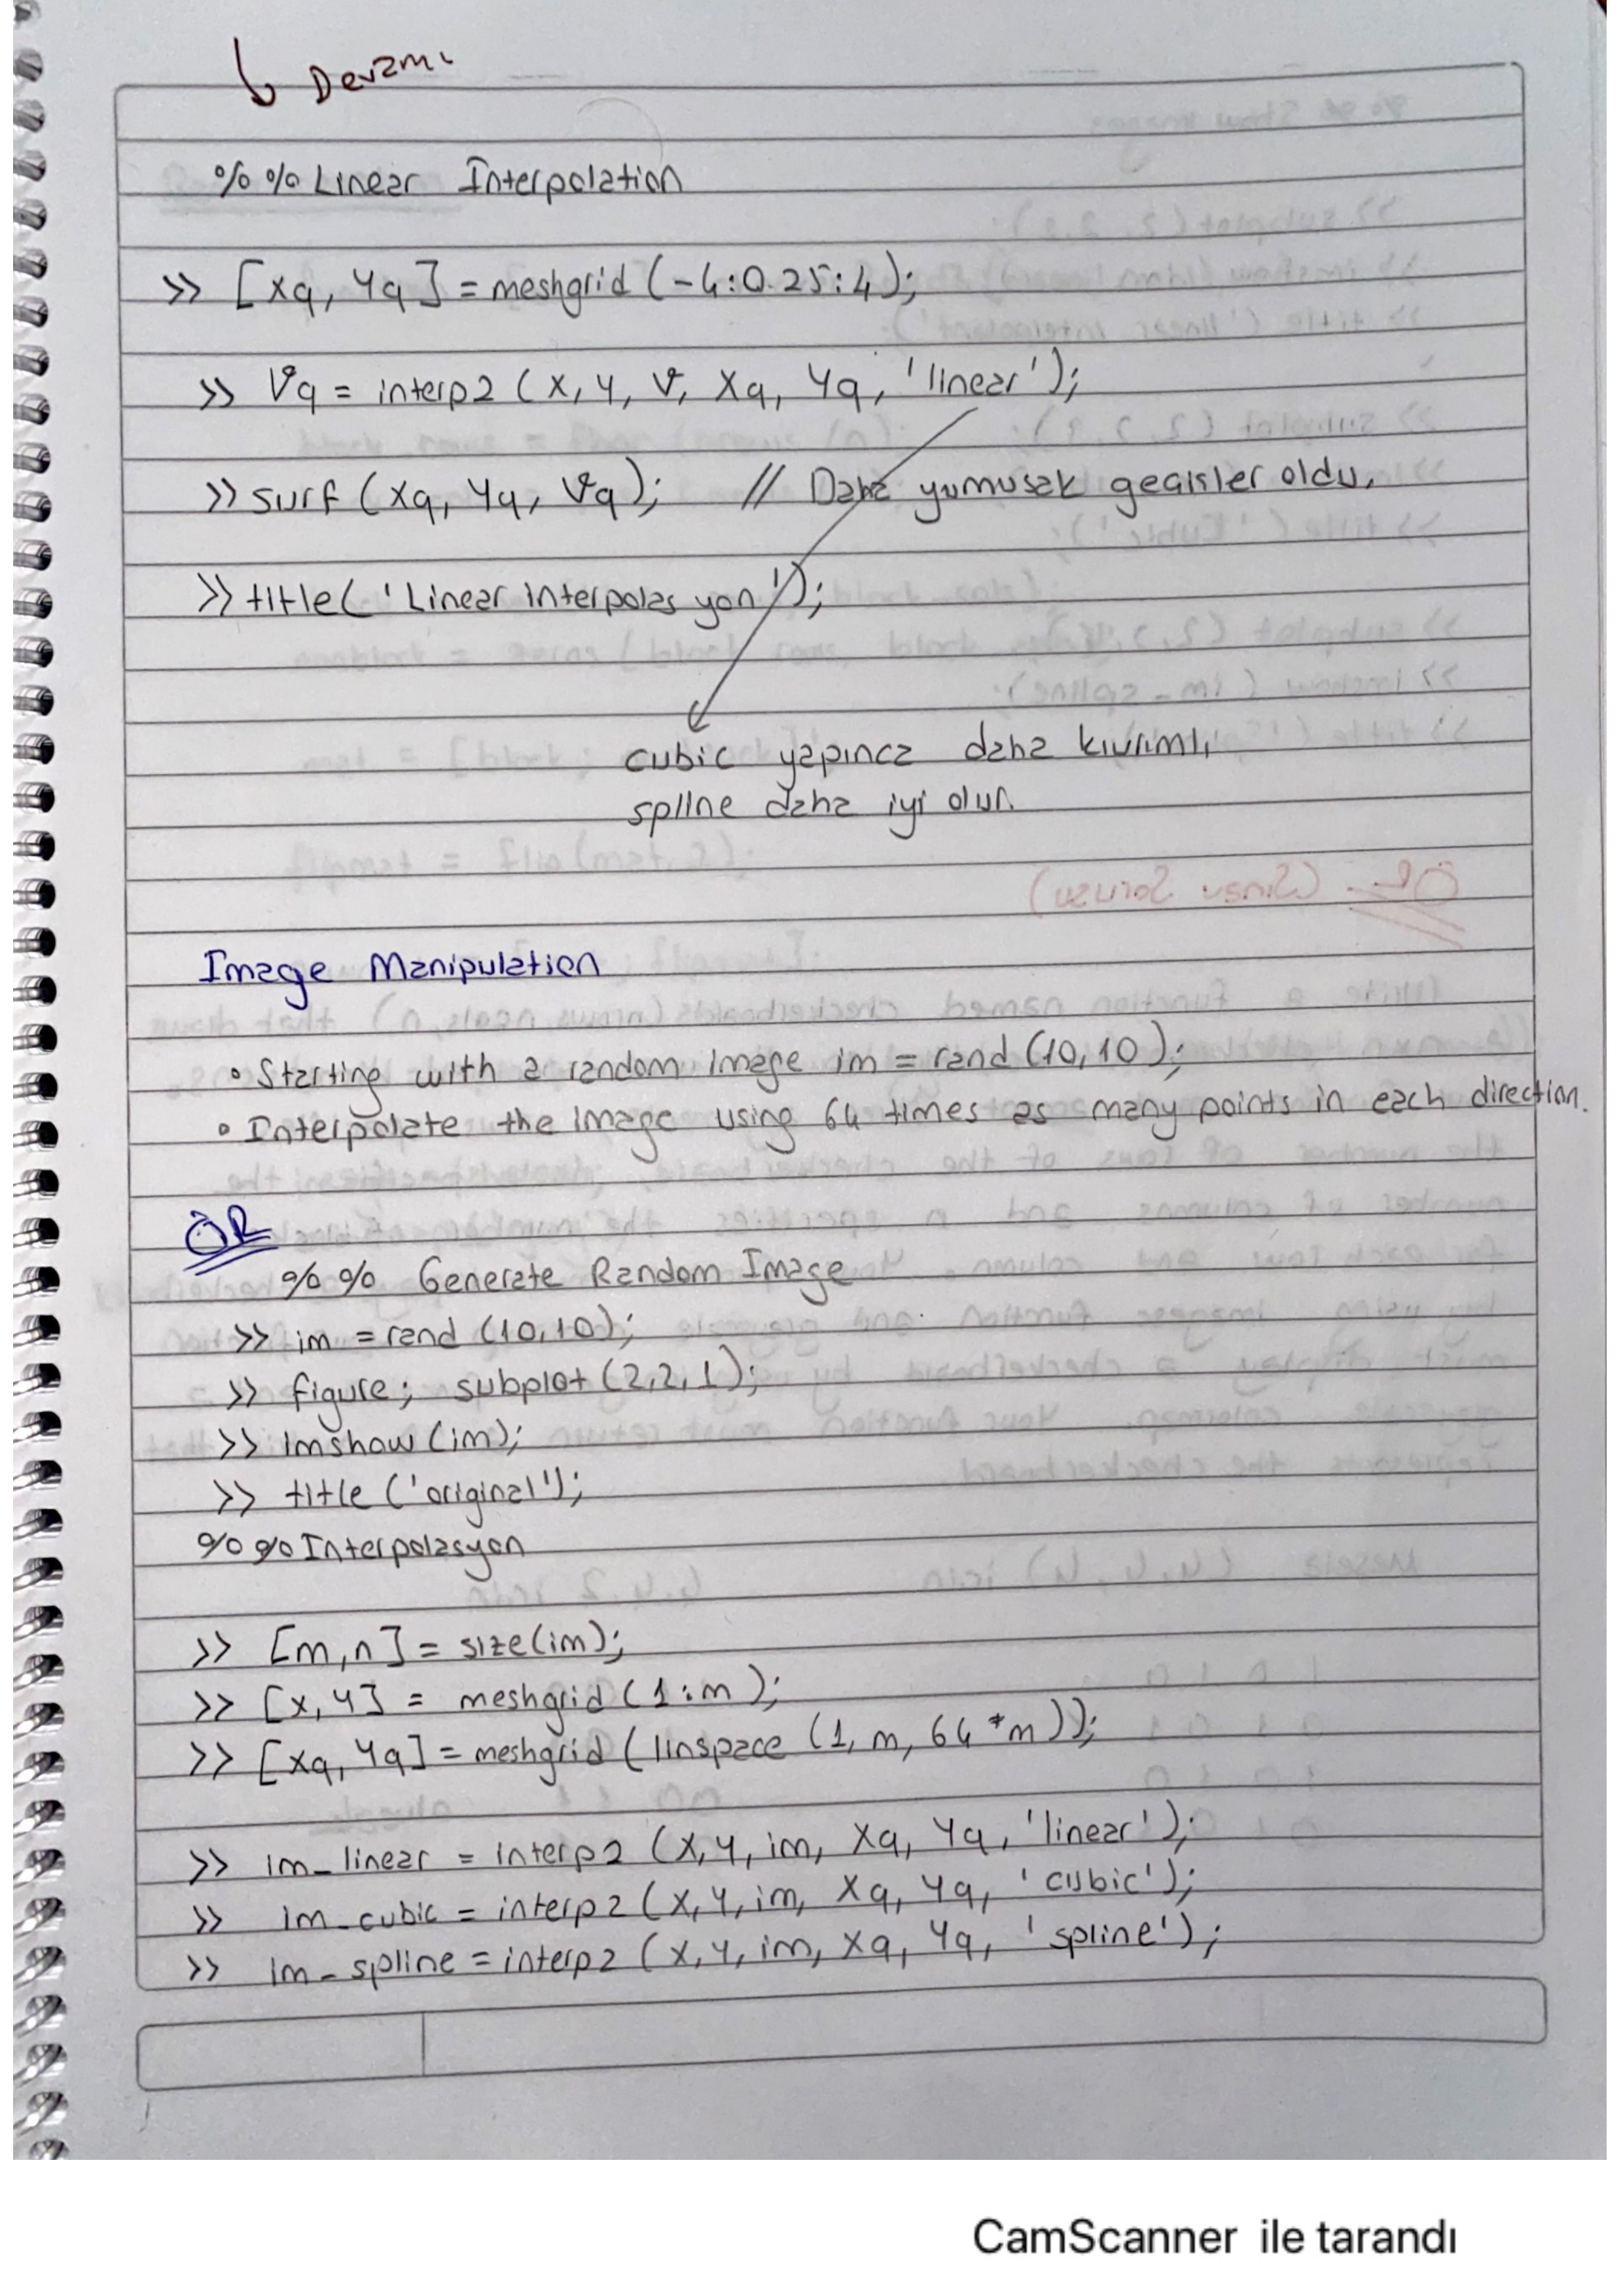 Devamı
%% Linear Interpolation
>> [xq, yq] = meshgrid (-4:0.25:4);
>> Vq = interp2 (x, y, v, xq, yq, 'linear');
>> surf (xq, yq, Vq); // Daha yumusak gecisler oldu.
>> title( 'Linear interpolasyon');
cubic yapınca daha kıvrımlı,
spline daha iyi olur.
Image Manipulation
• Starting with a random image im = rand (10,10);
• Interpolate the image using 64 times as many points in each direction.
ÖR
%% Generate Random Image
>> im = rand (10,10);
>> figure; subplot (2,2,1);
>> imshow (im);
>> title ('original');
%% Interpolasyon
>> [m,n] = size(im);
>> [x,y] = meshgrid (1:m);
>> [xq, yq] = meshgrid (linspace (1, m, 64*m));
>> im_linear = interp2 (x,y, im, xq, yq, 'linear');
>> im_cubic = interp2 (x,y,im, xq, yq, 'cubic');
>> im_spline = interp2 (x,y,im, xq, yq, 'spline');
CamScanner ile tarandı